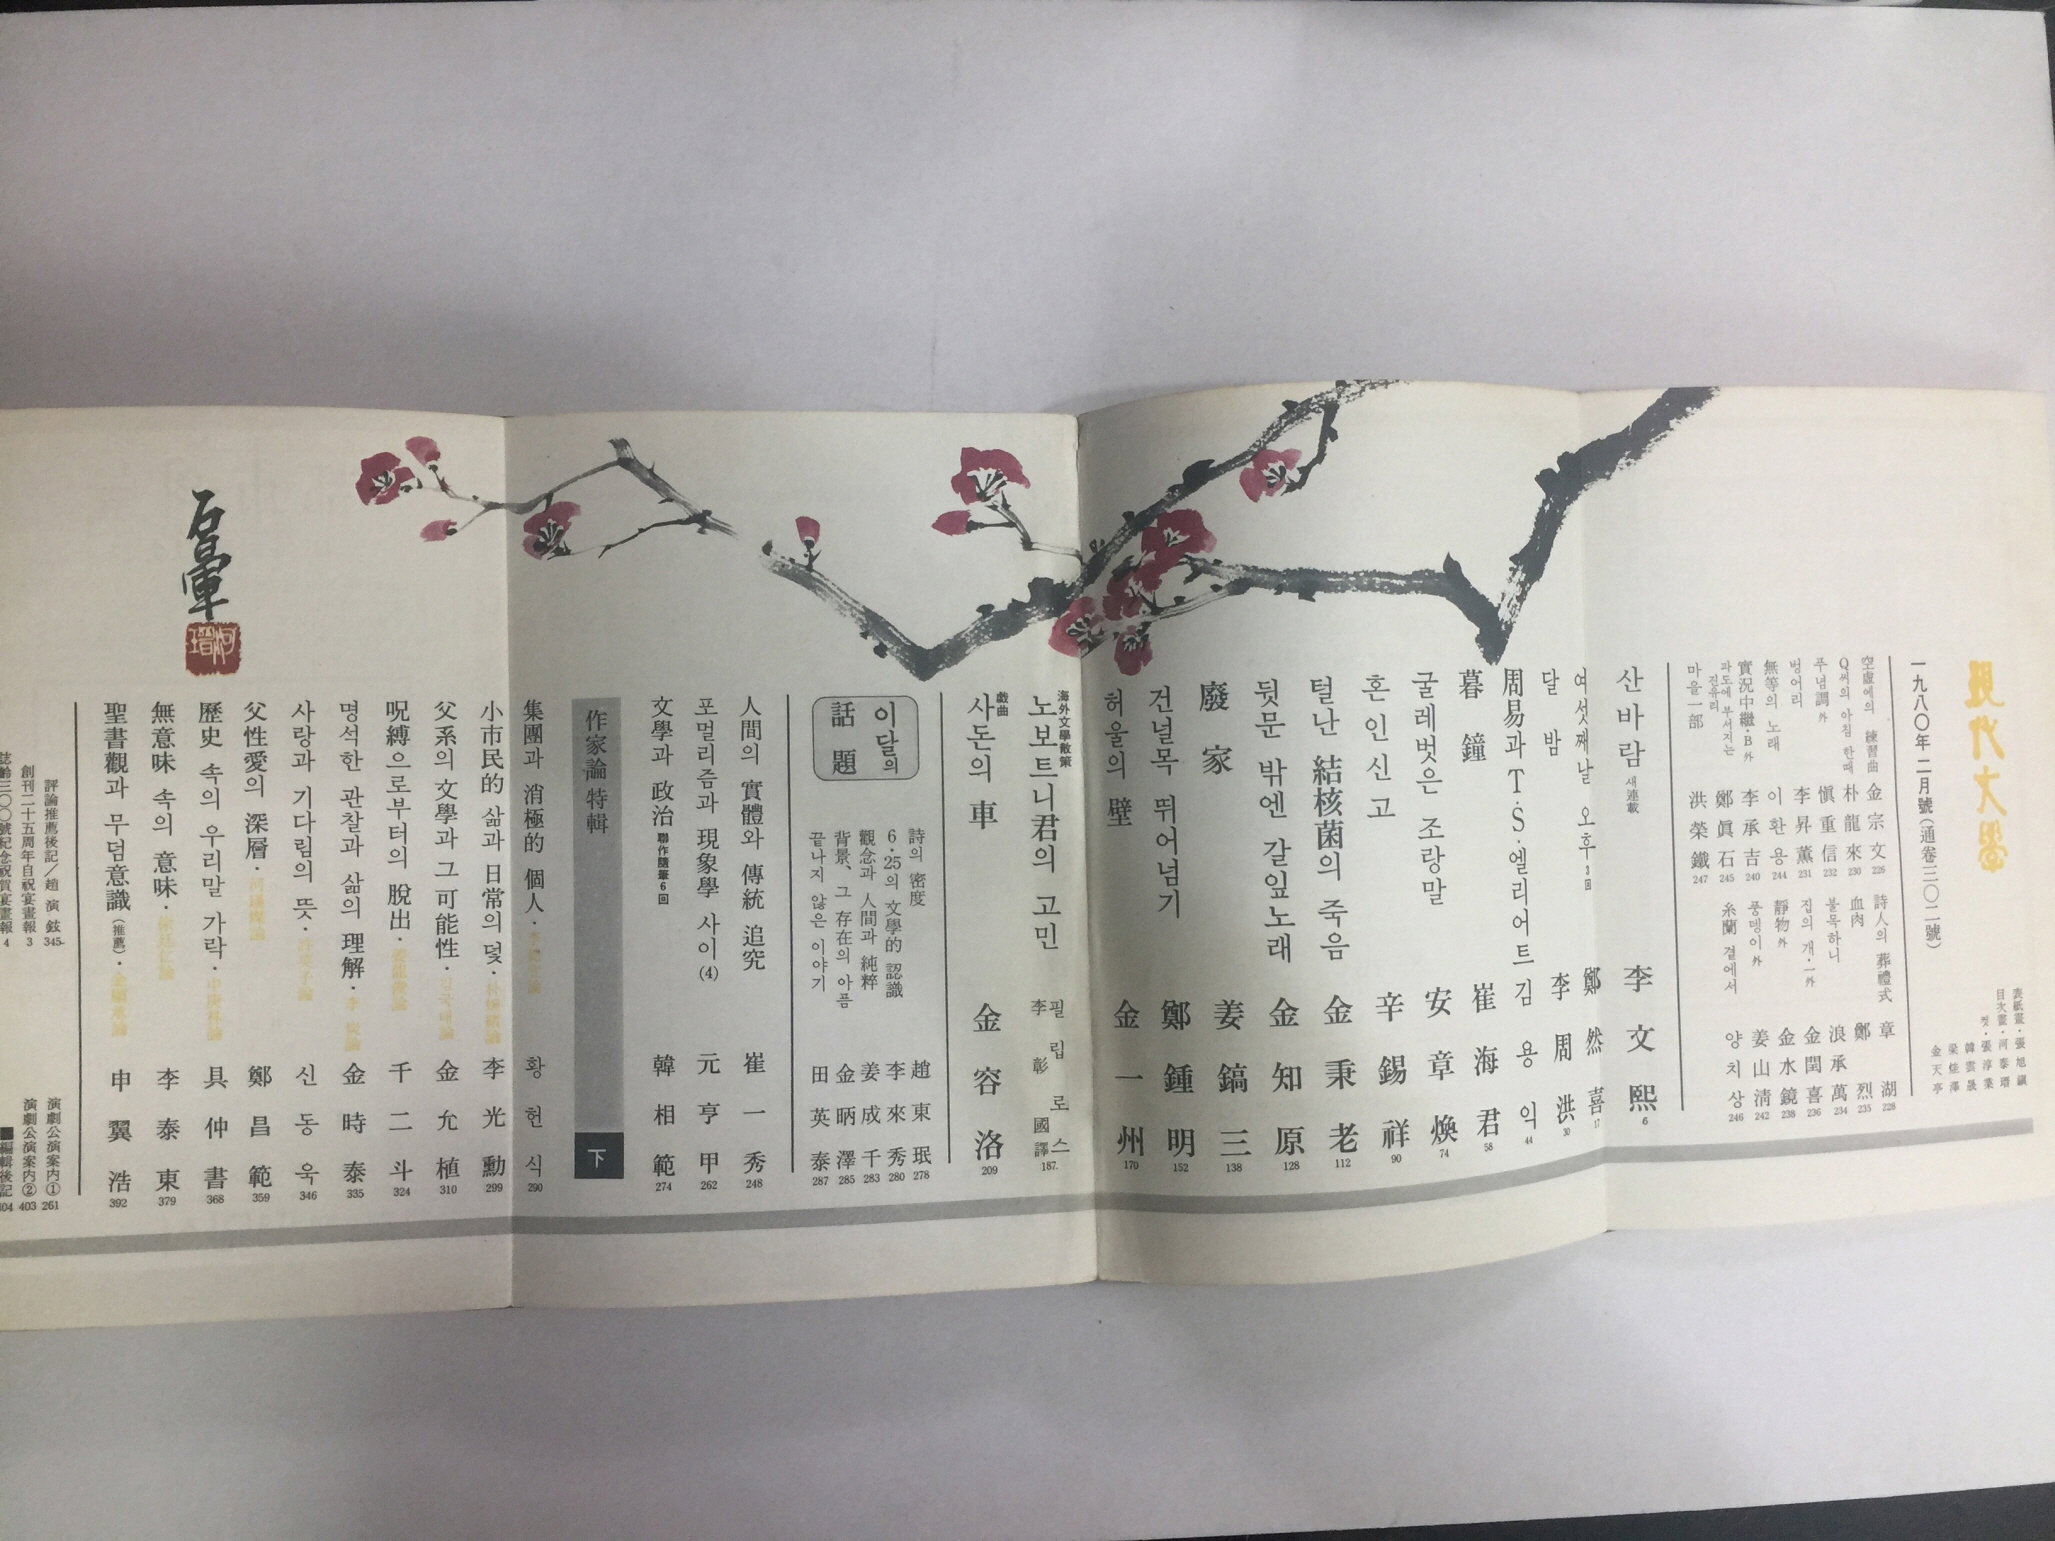 現代文學
一九八〇年 二月號(通卷三〇二號)
表紙畫·張旭鎭
目次畫·河泰瑨
컷·張淳業
韓雲晟
金天亭
空虛에의 練習曲 金宗文 226
Q씨의 아침 한때 朴龍來 230
푸념調 外 愼重信 232
벙어리 李昇薰 231
無等의 노래 이환용 244
實況中繼·B 外 李承吉 240
파도에 부서지는 진유리 鄭眞石 245
마을一部 洪榮鐵 247
詩人의 葬禮式 章湖 228
血肉 鄭烈 235
불목하니 浪承萬 234
집의 개·一外 金閏喜 236
靜物 外 金水鏡 238
풍뎅이 外 姜山淸 242
糸蘭 곁에서 양치상 246
산바람 새連載 李文熙 6
여섯째날 오후 3回 鄭然喜 17
달밤 李周洪 30
周易과 T·S·엘리어트 김용익 44
暮鐘 崔海君 58
굴레벗은 조랑말 安章煥 74
혼인신고 辛錫祥 90
털난 結核菌의 죽음 金秉老 112
뒷문 밖엔 갈잎노래 金知原 128
廢家 姜鎬三 138
건널목 뛰어넘기 鄭鍾明 152
허울의 壁 金一州 170
海外文學散策
노보트니君의 고민 필립 로스 李彰國 譯 187
戱曲
사돈의 車 金容洛 209
이달의 話題
詩의 密度 趙東珉 278
6·25의 文學的 認識 李來秀 280
觀念과 人間과 純粹 姜成千 283
背景、그 存在의 아픔 金昞澤 285
끝나지 않은 이야기 田英泰 287
人間의 實體와 傳統 追究 崔一秀 248
포멀리즘과 現象學 사이(4) 元亨甲 262
文學과 政治 聯作隨筆6回 韓相範 274
作家論 特輯 下
集團과 消極的 個人· 황헌식 290
小市民的 삶과 日常의 덫· 李光勳 299
父系의 文學과 그 可能性· 金允植 310
呪縛으로부터의 脫出· 千二斗 324
명석한 관찰과 삶의 理解· 金時泰 335
사랑과 기다림의 뜻· 신동욱 346
父性愛의 深層· 鄭昌範 359
歷史 속의 우리말 가락· 申庚林論 具仲書 368
無意味 속의 意味· 李泰東 379
聖書觀과 무덤意識(推薦)· 申翼浩 392
評論推薦後記/趙演鉉 345
創刊二十五周年自祝宴畫報 3
誌齡三〇〇號紀念祝賀宴畫報 4
演劇公演案內① 261
演劇公演案內② 403
■編輯後記 404